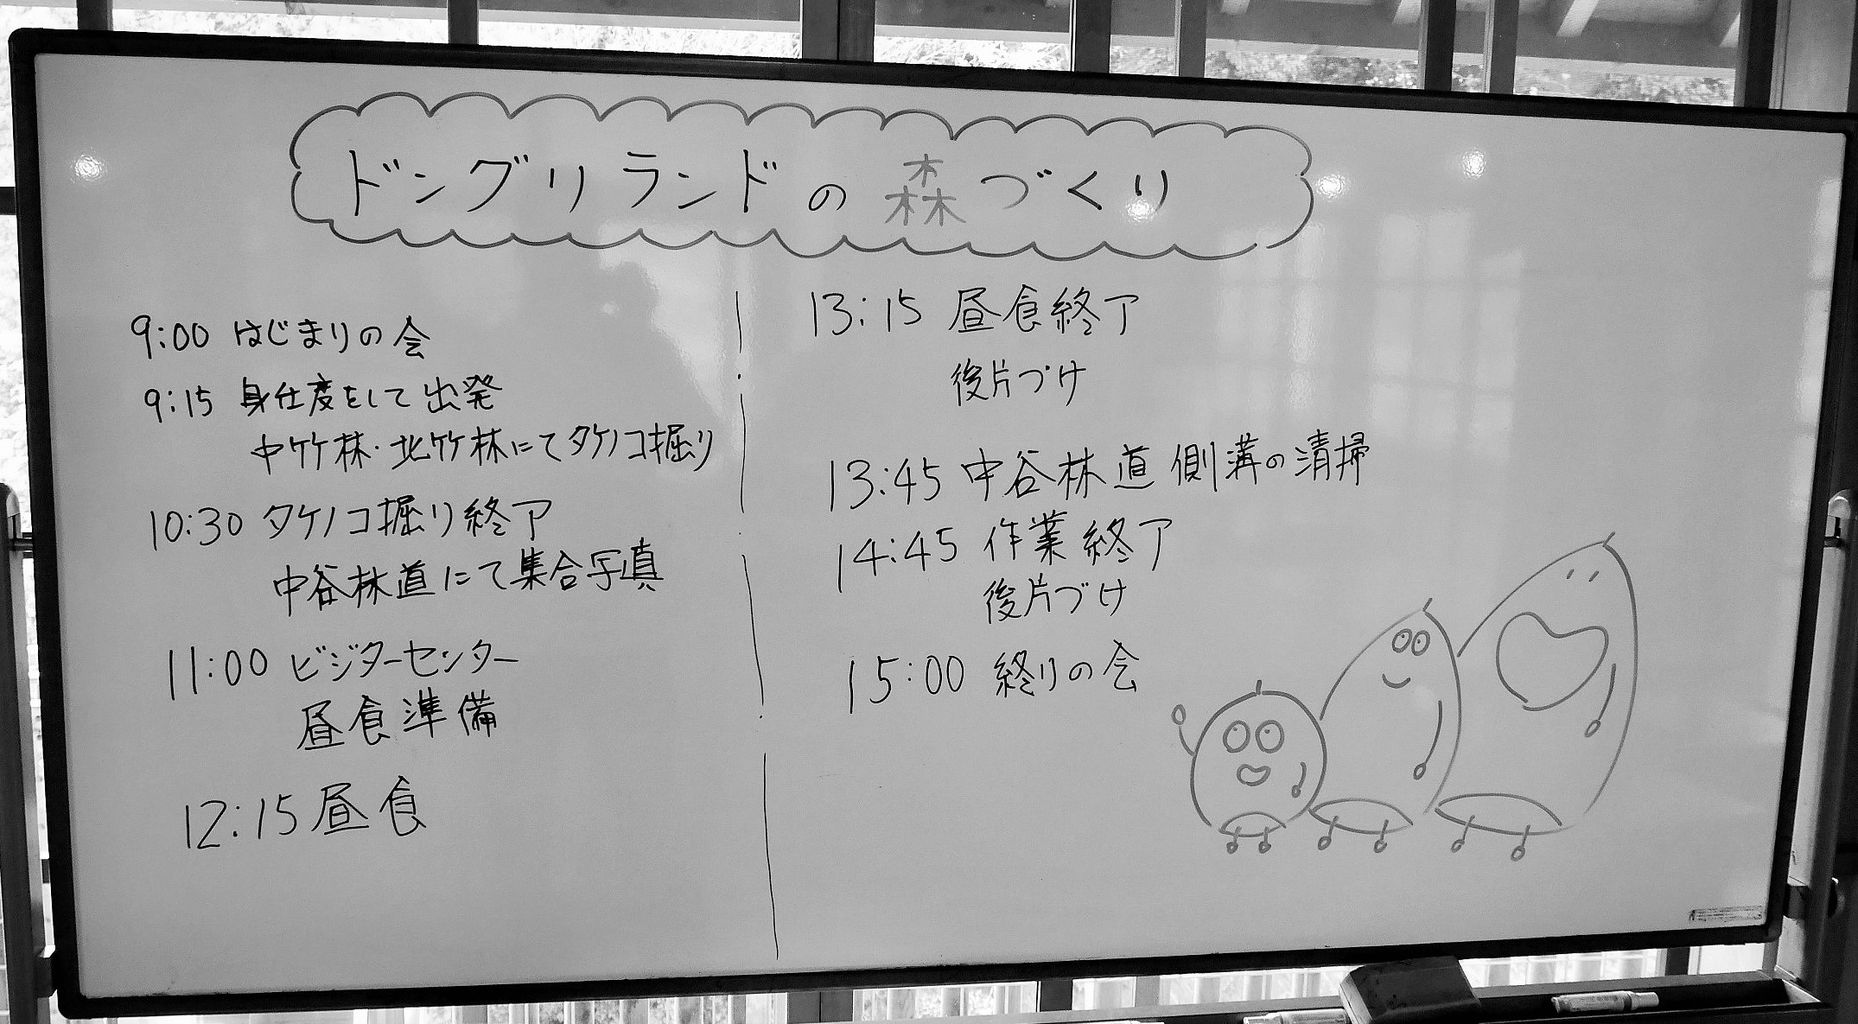 ドングリランドの森づくり
9:00 はじまりの会
9:15 身仕度をして出発
中竹林・北竹林にてタケノコ掘り
10:30 タケノコ掘り終了
中谷林道にて集合写真
11:00 ビジターセンター
昼食準備
12:15 昼食
13:15 昼食終了
後片づけ
13:45 中谷林道 側溝の清掃
14:45 作業終了
後片づけ
15:00 終りの会